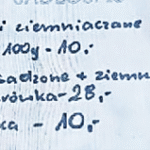 i ziemniaczane
100g - 10,-
sadzone + ziemn
rówka - 28,-
ka - 10,-